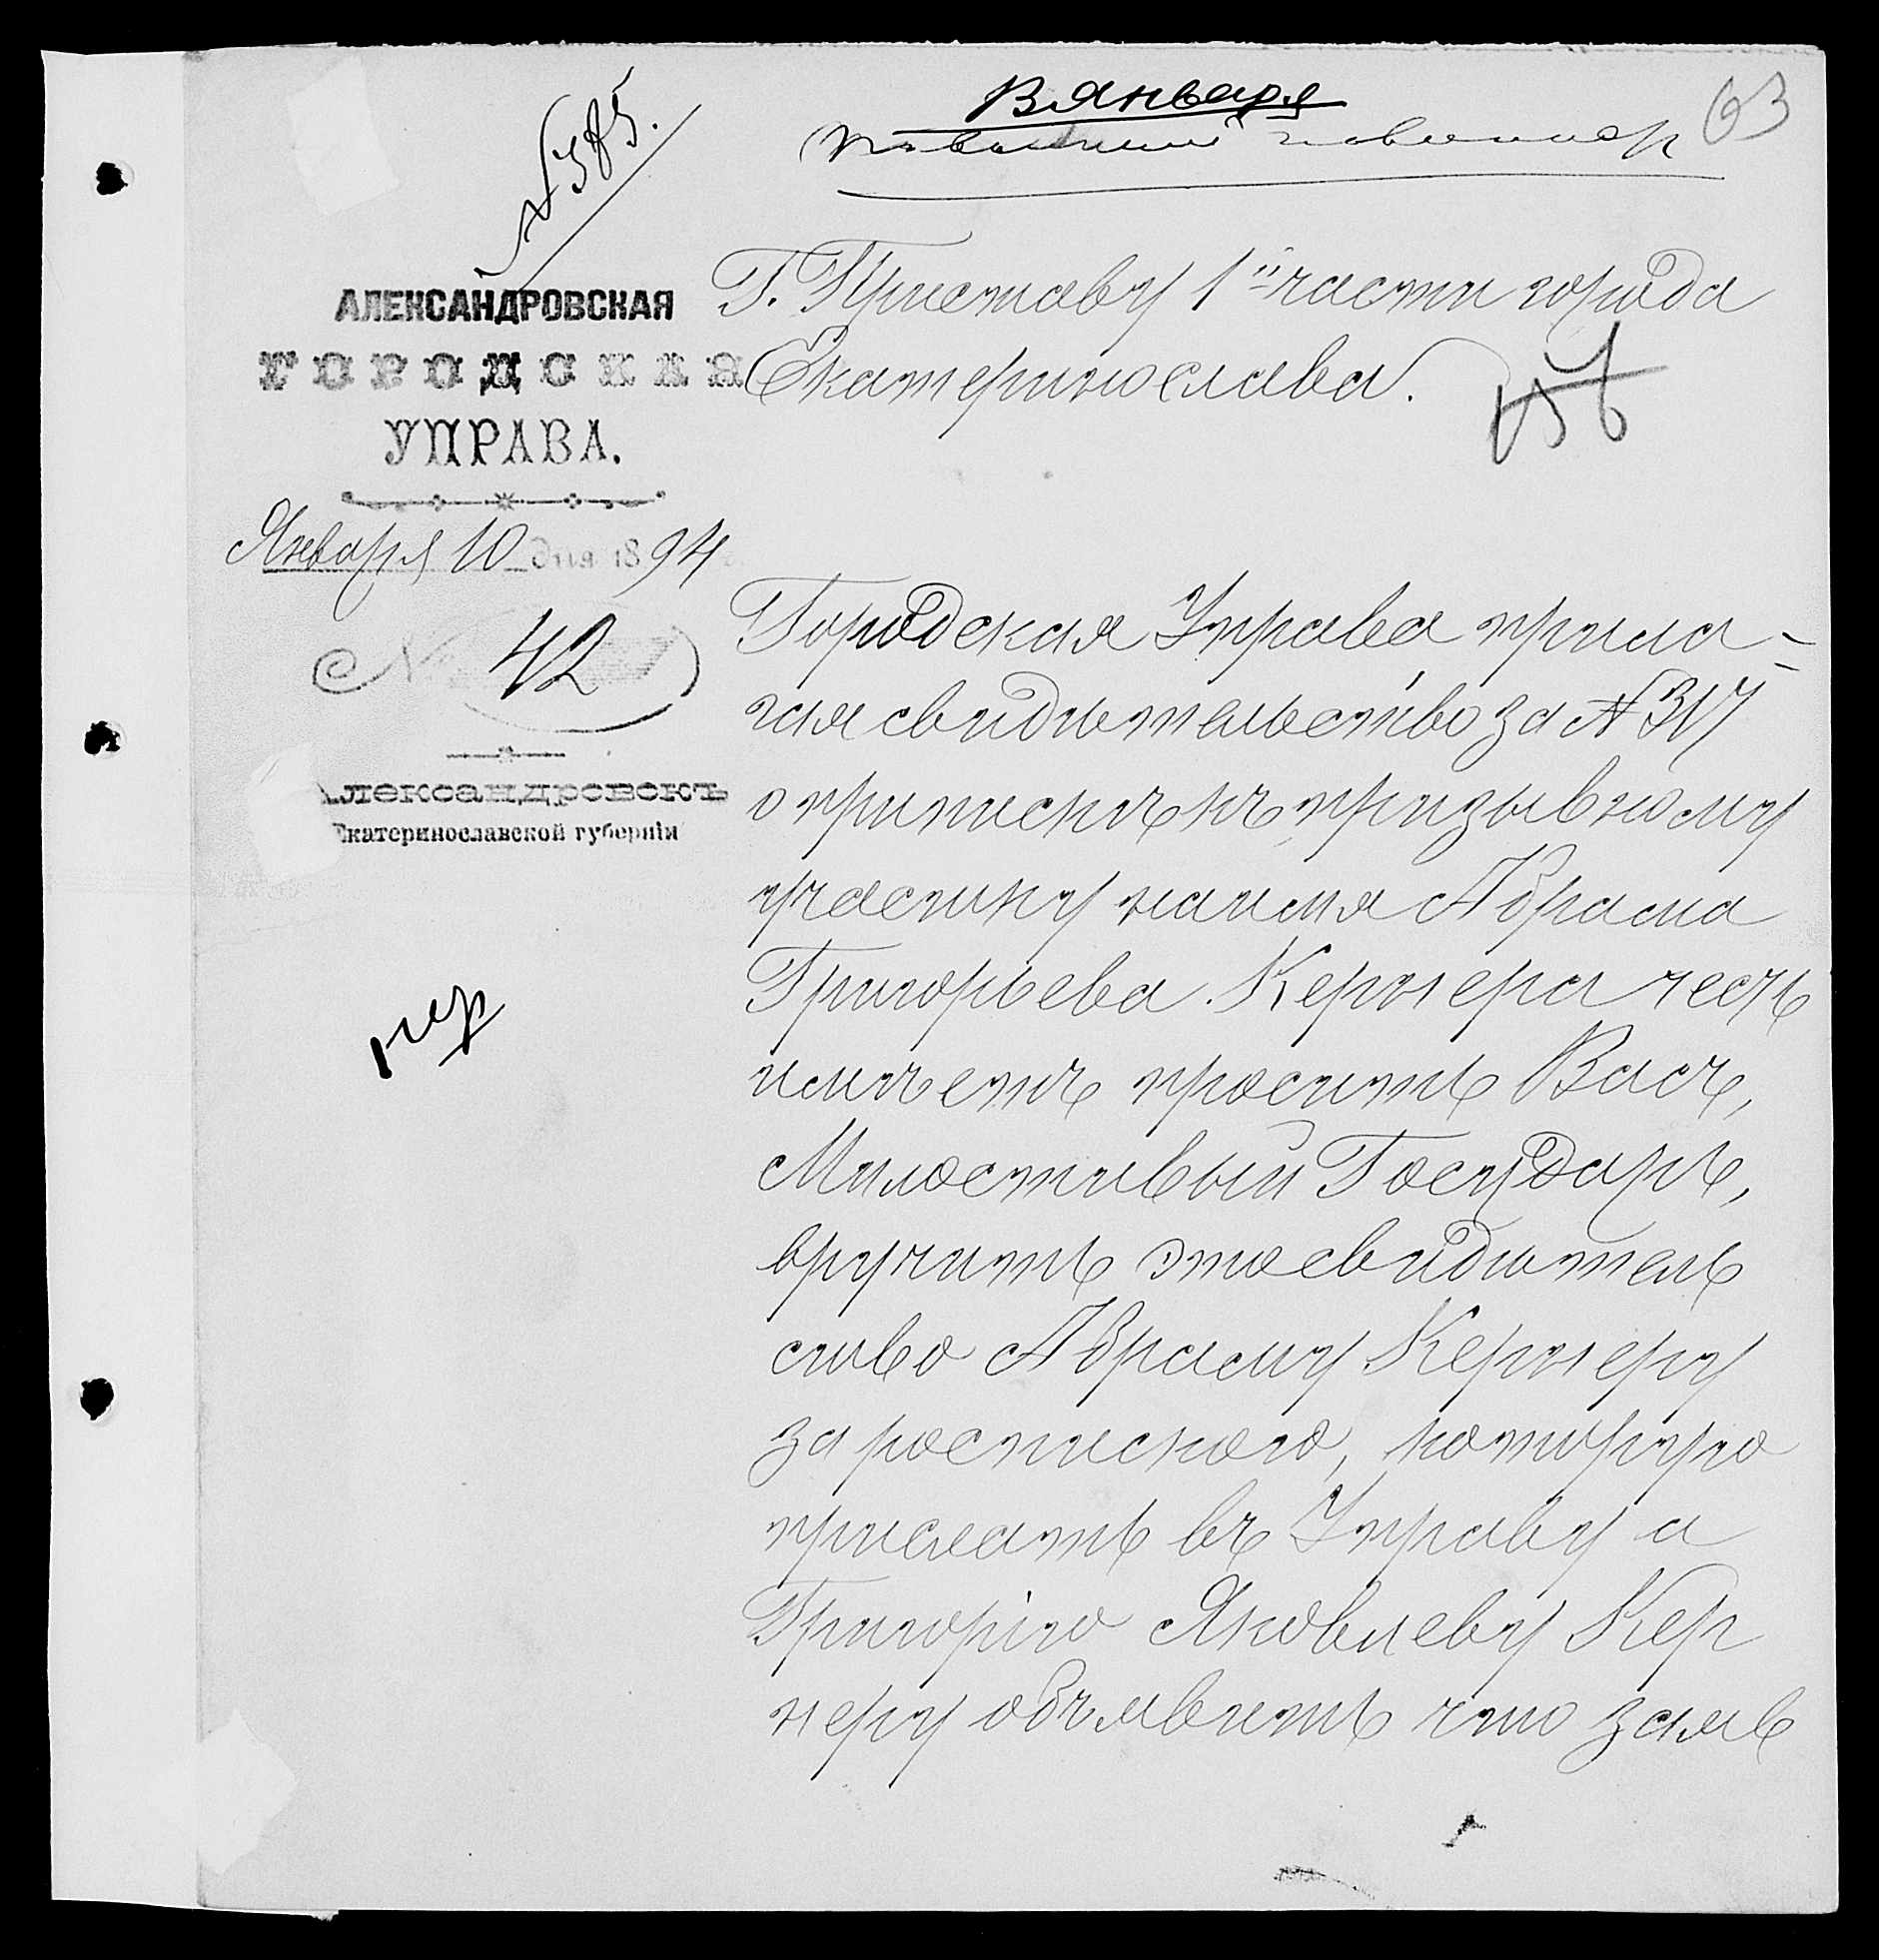 В января
63
№ 385.
АЛЕКСАНДРОВСКАЯ
ГОРОДСКАЯ
УПРАВА.
Января 10 дня 1894
№ 42
Александровскъ
Екатеринославской губерніи
Г. Приставу 1й части города
Екатеринослава.
Городская Управа прила-
гая свидѣтельство за № 317
о припискѣ къ призывному
участку на имя Абрама
Григорьева Кернера честь
имѣетъ просить Васъ,
Милостивый Государь,
вручить это свидѣтель
ство Абраму Кернеру
за роспискою, которую
прислать въ Управу а
Григорію Яковлеву Кер
неру объявить что заяв